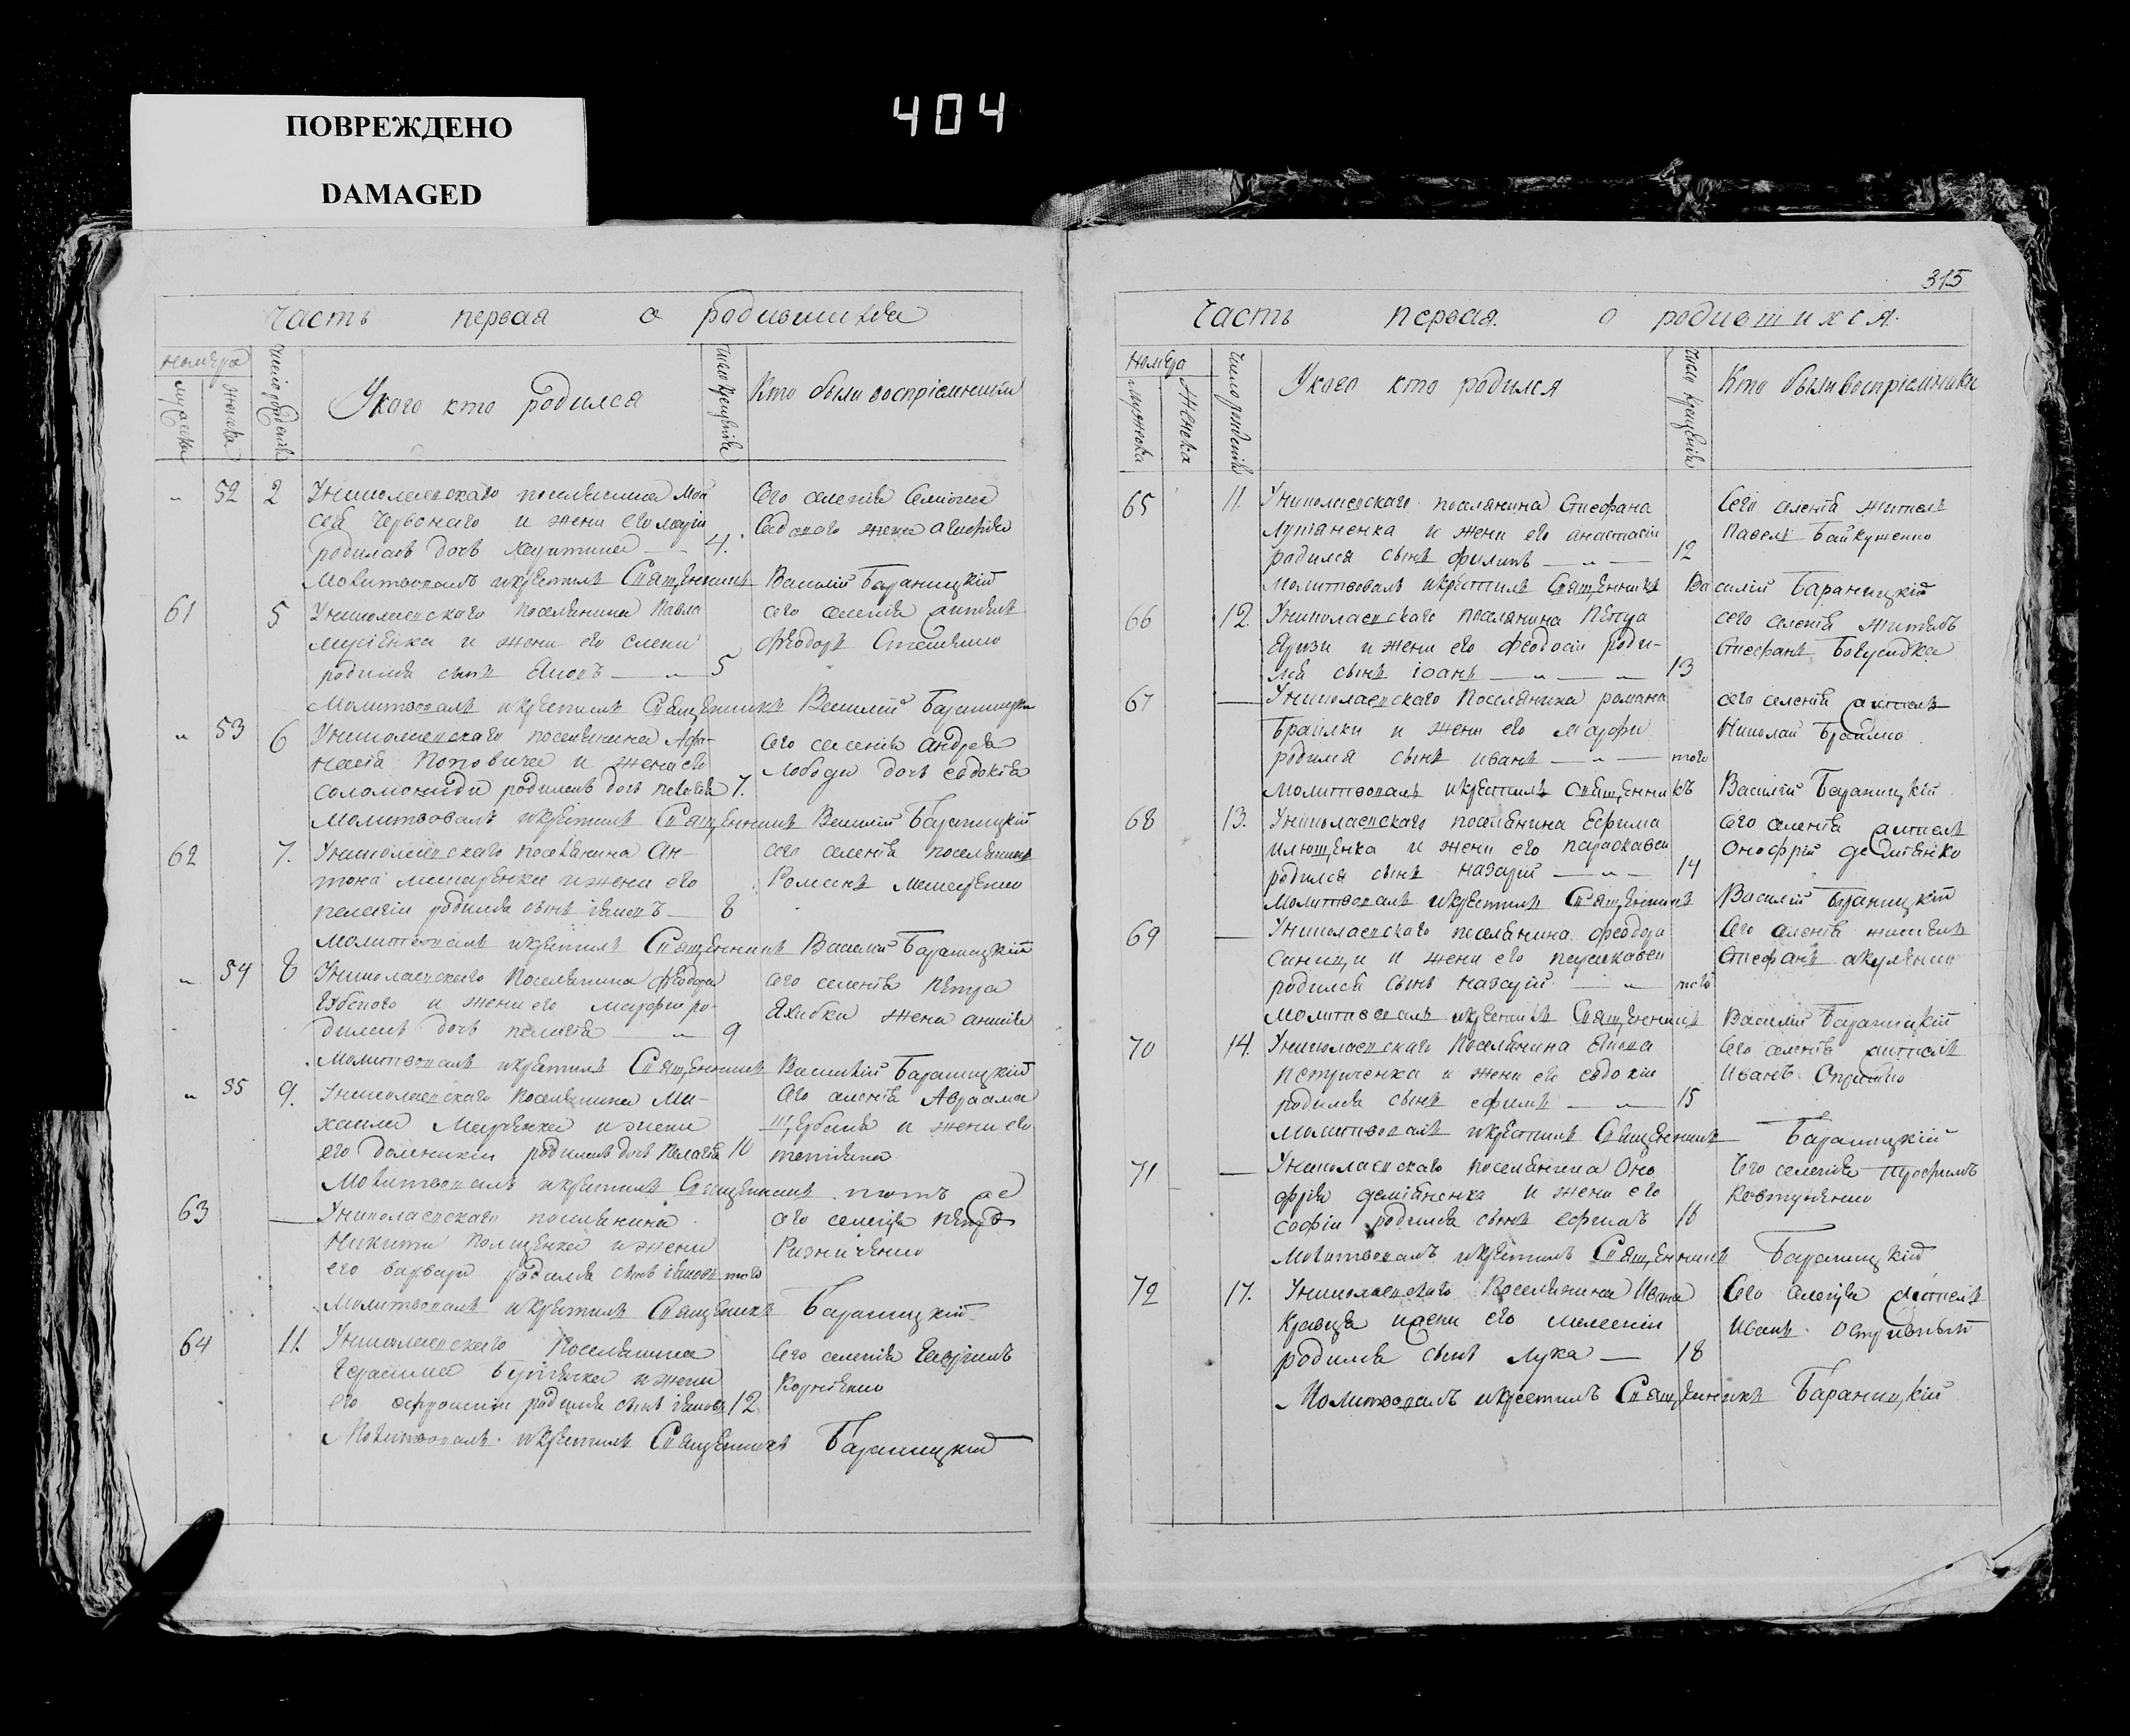 ПОВРЕЖДЕНО
DAMAGED
404
Часть первая о родившихся
номера
мужеска
женска
число рожденія
У кого кто родился
число крещенія
Кто были воспріемники
" 52 2 Униколаевскаго поселянина Мой
сея Червонаго и жени его
родилась дочь 4.
Сего селенія Семіона
жена
Молитвовалъ икрестилъ Священникъ Василій Бараницкій
61 5 Униколаевскаго поселянина Павла
и жени его елени
родился сынъ Яковъ — " — 5
сего селенія жителъ
Феодоръ
Молитвовалъ икрестилъ Священникъ Василій Бараницкій
" 53 6 Униколаевскаго поселянина Афа-
насія Поповича и жени его
соломониди родилась дочь пелагія 7.
сего селенія андрея
лободи дочь евдокія
Молитвовалъ икрестилъ Священникъ Василій Бараницкій
62 7. Униколаевскаго поселянина Ан-
тона и жени его
пелагіи родился сынъ іяковъ — 8
сего селенія поселянинъ
Романъ
Молитвовалъ икрестилъ Священникъ Василій Бараницкій
" 54 8 Униколаевскаго Поселянина Феодора
и жени его марфи ро-
дилась дочь пелагія — " — 9
сего селенія петра
жена
Молитвовалъ икрестилъ Священникъ Василій Бараницкій
" 55 9. Униколаевскаго Поселянина Ми-
хаила Марченка и жени
его домникіи родилась дочь Пелагія 10
Сего селенія Авраама
и жени его
Молитвовалъ икрестилъ Священникъ тотъ же
63 — Униколаевскаго поселянина
Никити и жени
его варвари родился сынъ іяковъ того
сего селенія петръ
Ризниченко
Молитвовалъ икрестилъ Священникъ Бараницкій
64 11. Униколаевскаго Поселянина
Герасима и жени
его родился сынъ іяковъ 12
Сего селенія
Корніенко
Молитвовалъ икрестилъ Священникъ Бараницкій
315
Часть первая. о родившихся.
номера
мужеска
Женска
Число рожденія
У кого кто родился
число крещенія
Кто были воспріемники
65 11. Униколаевскаго поселянина Стефана
Лупяненка и жени его анастасіи
родился сынъ филипъ — " — 12
Сего селенія жителъ
Павелъ Байкуженко
Молитвовалъ икрестилъ Священникъ Василій Бараницкій
66 12. Униколаевскаго поселянина Петра
Яризи и жени его Феодосіи роди-
лся сынъ іоанъ — " — " 13
сего селенія жителъ
Стефанъ
67 — Униколаевскаго Поселянина романа
Браилки и жени его Марфи
родился сынъ иванъ — " — того
сего селенія жителъ
Николай Браилко
Молитвовалъ икрестилъ священникъ Василій Бараницкій
68 13. Униколаевскаго поселянина Ефима
Илющенка и жени его параскавеи
родился сынъ назарій — " — 14
Сего селенія жителъ
Онофрій деміянко
Молитвовалъ икрестилъ Священникъ Василій Бараницкій
69 — Униколаевскаго поселянина феодора
Синици и жени его параскавеи
родился сынъ назарій — " того
Сего селенія жителъ
Стефанъ акуленко
Молитвовалъ икрестилъ Священникъ Василій Бараницкій
70 14. Униколаевскаго Поселянина Якова
Петриченка и жени его евдокіи
родился сынъ ефимъ — " — 15
Сего селенія жителъ
Иванъ
Молитвовалъ икрестилъ Священникъ Бараницкій
71 — Униколаевскаго поселянина Оно
фрія деміяненка и жени его
софіи родился сынъ ефимъ 16
Сего селенія трофимъ
Ковтуненко
Молитвовалъ икрестилъ Священникъ Бараницкій
72 17. Униколаевскаго Поселянина Ивана
Кравца и жени его меланіи
родился сынъ Лука — 18
Сего селенія жителъ
Иванъ
Молитвовалъ икрестилъ Священникъ Бараницкій